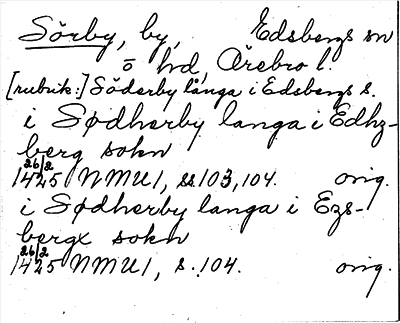 Sörby, by, Edsbergs sn
ö hd, Örebro l.
[rubrik:] Söderby långa i Edsbergs s.
i Sødherby langa i Edhz-
berg sokn
26/2
1425 NMU1, ss.103,104. orig.
i Sødherby langa i Ezs-
bergx sokn
26/2
1425 NMU1, s.104. orig.